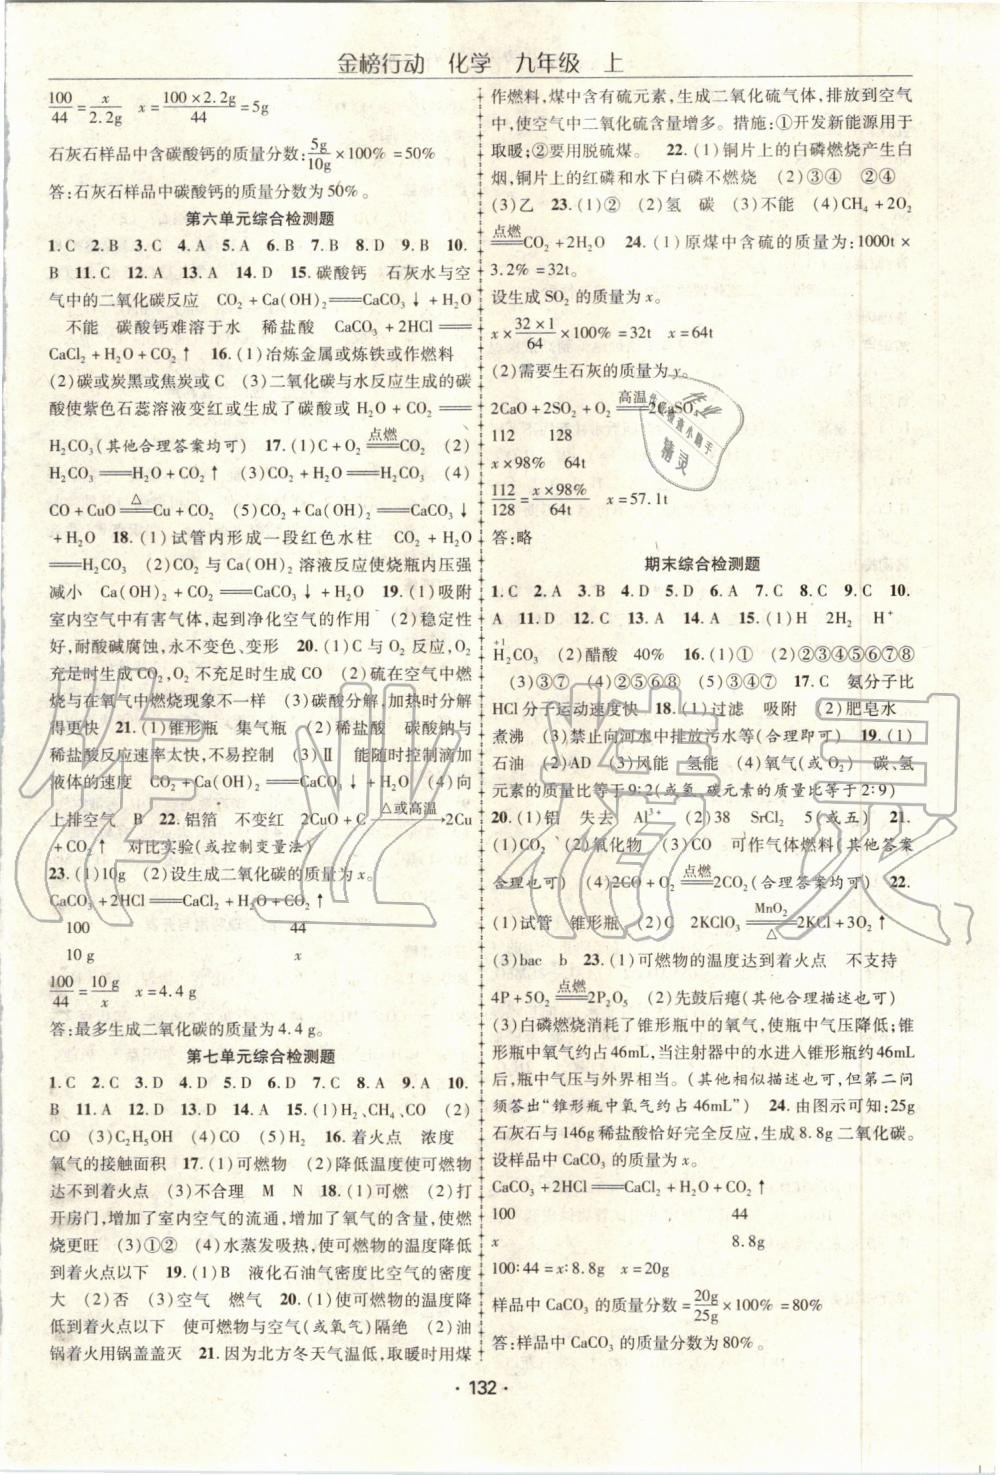 金榜行动 化学 九年级 上
100/44=x/2.2g x=100×2.2g/44=5g
石灰石样品中含碳酸钙的质量分数:5g/10g×100%=50%
答:石灰石样品中碳酸钙的质量分数为50%。
第六单元综合检测题
1.C 2.B 3.C 4.A 5.A 6.B 7.B 8.D 9.B 10.
B 11.C 12.A 13.A 14.D 15.碳酸钙 石灰水与空
气中的二氧化碳反应 CO₂+Ca(OH)₂══CaCO₃↓+H₂O
不能 碳酸钙难溶于水 稀盐酸 CaCO₃+2HCl══
CaCl₂+H₂O+CO₂↑ 16.(1)冶炼金属或炼铁或作燃料
(2)碳或炭黑或焦炭或C (3)二氧化碳与水反应生成的碳
酸使紫色石蕊溶液变红或生成了碳酸或 H₂O+CO₂══
H₂CO₃(其他合理答案均可) 17.(1)C+O₂═点燃═CO₂ (2)
H₂CO₃══H₂O+CO₂↑ (3)CO₂+H₂O══H₂CO₃ (4)
CO+CuO═△═Cu+CO₂ (5)CO₂+Ca(OH)₂══CaCO₃↓
+H₂O 18.(1)试管内形成一段红色水柱 CO₂+H₂O
══H₂CO₃ (2)CO₂与Ca(OH)₂溶液反应使烧瓶内压强
减小 Ca(OH)₂+CO₂══CaCO₃↓+H₂O 19.(1)吸附
室内空气中有害气体,起到净化空气的作用 (2)稳定性
好,耐酸碱腐蚀,永不变色、变形 20.(1)C与O₂反应,O₂
充足时生成CO₂,O₂不充足时生成CO (2)硫在空气中燃
烧与在氧气中燃烧现象不一样 (3)碳酸分解,加热时分解
得更快 21.(1)锥形瓶 集气瓶 (2)稀盐酸 碳酸钠与
稀盐酸反应速率太快,不易控制 (3)Ⅱ 能随时控制滴加
液体的速度 CO₂+Ca(OH)₂══CaCO₃↓+H₂O (4)向
上排空气 B 22.铝箔 不变红 2CuO+C═△或高温═2Cu
+CO₂↑ 对比实验(或控制变量法)
23.(1)10g (2)设生成二氧化碳的质量为x。
CaCO₃+2HCl══CaCl₂+H₂O+CO₂↑
100 44
10 g x
100/44=10 g/x x=4.4 g
答:最多生成二氧化碳的质量为4.4 g。
第七单元综合检测题
1.C 2.C 3.D 4.D 5.D 6.D 7.C 8.A 9.A 10.
B 11.A 12.D 13.D 14.A 15.(1)H₂、CH₄、CO (2)
CO (3)C₂H₅OH (4)CO (5)H₂ 16.着火点 浓度
氧气的接触面积 17.(1)可燃物 (2)降低温度使可燃物
达不到着火点 (3)不合理 M N 18.(1)可燃 (2)打
开房门,增加了室内空气的流通,增加了氧气的含量,使燃
烧更旺 (3)①② (4)水蒸发吸热,使可燃物的温度降低
到着火点以下 19.(1)B 液化石油气密度比空气的密度
大 (2)否 (3)空气 燃气 20.(1)使可燃物的温度降
低到着火点以下 使可燃物与空气(或氧气)隔绝 (2)油
锅着火用锅盖盖灭 21.因为北方冬天气温低,取暖时用煤
作燃料,煤中含有硫元素,生成二氧化硫气体,排放到空气
中,使空气中二氧化硫含量增多。措施:①开发新能源用于
取暖;②要用脱硫煤。 22.(1)铜片上的白磷燃烧产生白
烟,铜片上的红磷和水下白磷不燃烧 (2)③④ ②④
(3)乙 23.(1)② (2)氢 碳 (3)不能 (4)CH₄+2O₂
═点燃═CO₂+2H₂O 24.(1)原煤中含硫的质量为:1000t×
3.2%=32t。
设生成SO₂的质量为x。
x×32×1/64×100%=32t x=64t
(2)需要生石灰的质量为y。
2CaO+2SO₂+O₂═高温═2CaSO₄
112 128
x×98% 64t
112/128=x×98%/64t x=57.1t
答:略
期末综合检测题
1.C 2.A 3.B 4.D 5.D 6.A 7.C 8.C 9.C 10.
A 11.D 12.C 13.A 14.A 15.(1)H 2H₂ H⁺
H₂⁺¹CO₃ (2)醋酸 40% 16.(1)① (2)②③④⑤⑥⑦⑧
(3)③⑦ (4)②④⑤⑥⑧ (5)③④⑦ 17.C 氨分子比
HCl分子运动速度快 18.(1)过滤 吸附 (2)肥皂水
煮沸 (3)禁止向河水中排放污水等(合理即可) 19.(1)
石油 (2)AD (3)风能 氢能 (4)氧气(或O₂) 碳、氢
元素的质量比等于9:2(或氢、碳元素的质量比等于2:9)
20.(1)铝 失去 Al³⁺ (2)38 SrCl₂ 5(或五) 21.
(1)CO₂ (2)氧化物 (3)CO 可作气体燃料(其他答案
合理也可) (4)2CO+O₂═点燃═2CO₂(合理答案均可) 22.
(1)试管 锥形瓶 (2)C 2KClO₃═MnO₂/△═2KCl+3O₂↑
(3)bac b 23.(1)可燃物的温度达到着火点 不支持
4P+5O₂═点燃═2P₂O₅ (2)先鼓后瘪(其他合理描述也可)
(3)白磷燃烧消耗了锥形瓶中的氧气,使瓶中气压降低;锥
形瓶中氧气约占46mL,当注射器中的水进入锥形瓶约46mL
后,瓶中气压与外界相当。(其他相似描述也可,但第二问
须答出“锥形瓶中氧气约占46mL”) 24.由图示可知:25g
石灰石与146g稀盐酸恰好完全反应,生成8.8g二氧化碳。
设样品中CaCO₃的质量为x。
CaCO₃+2HCl══CaCl₂+H₂O+CO₂↑
100 44
x 8.8g
100:44=x:8.8g x=20g
样品中CaCO₃的质量分数=20g/25g×100%=80%
答:样品中CaCO₃的质量分数为80%。
·132·
作业精灵